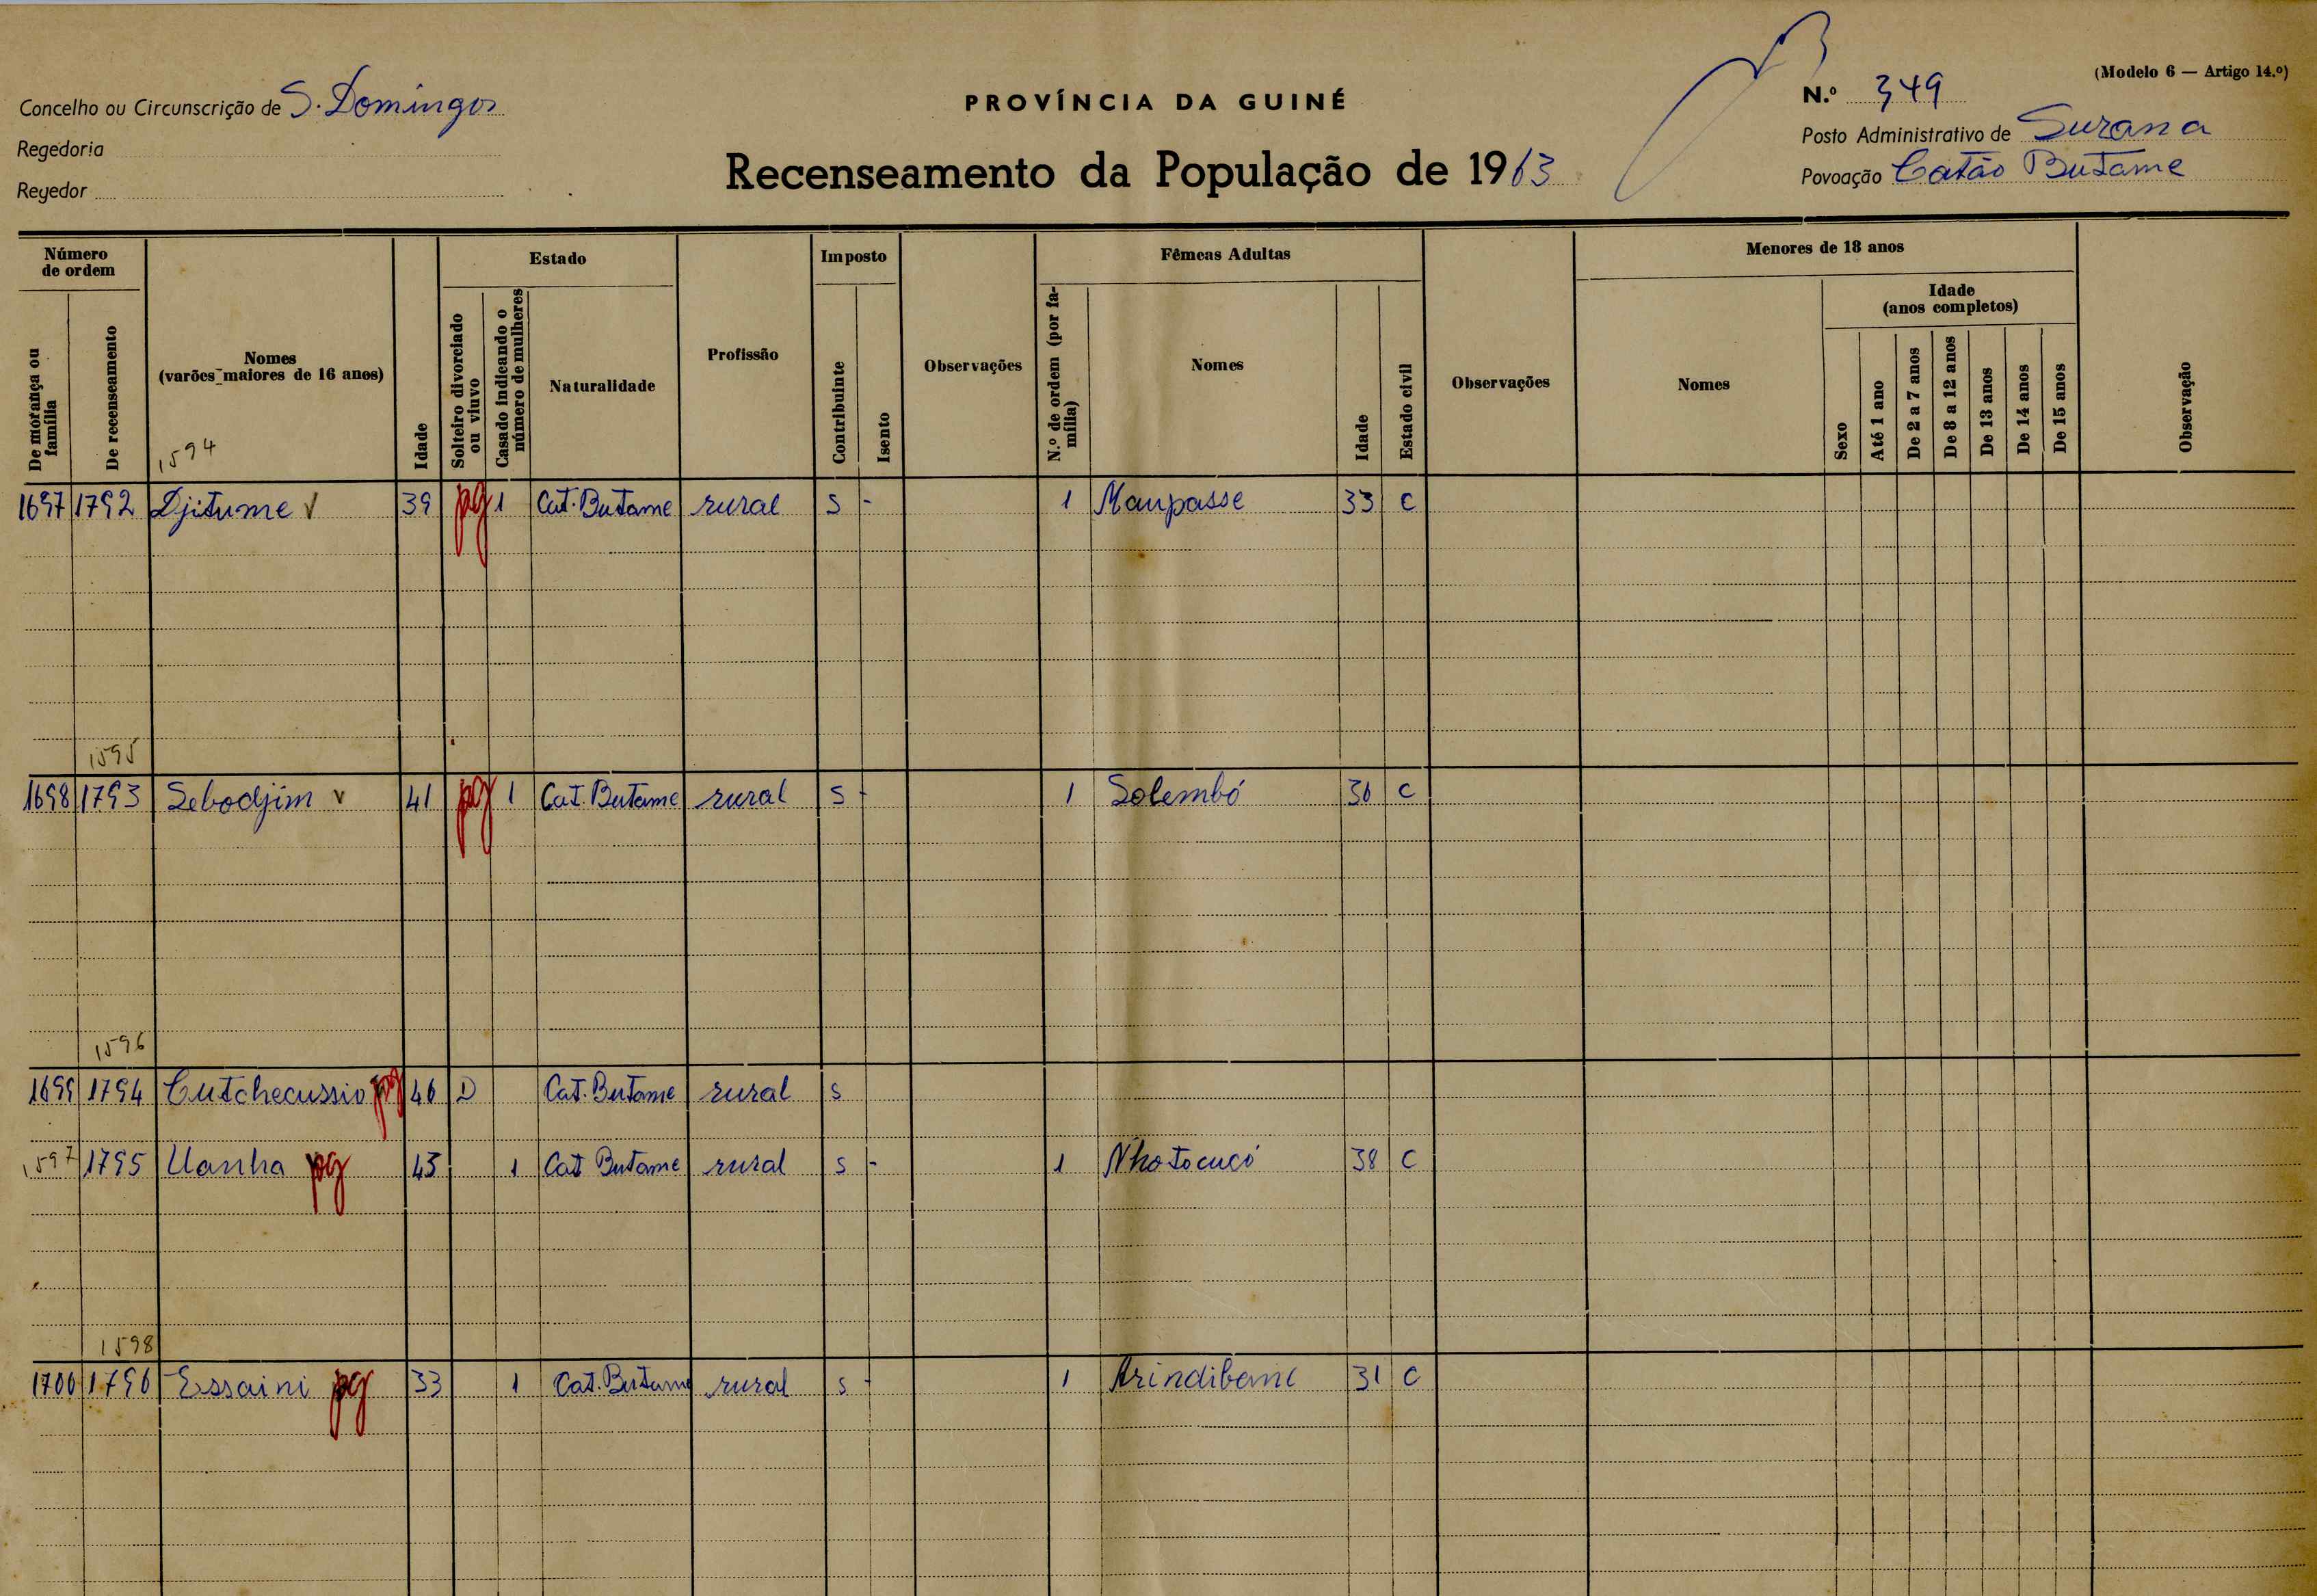 (Modelo 6 — Artigo 14.º)
Concelho ou Circunscrição de S. Domingos
PROVÍNCIA DA GUINÉ
N.º 349
Regedoria
Posto Administrativo de Suzana
Regedor
Recenseamento da População de 1963
Povoação Catão Butame
Número de ordem
Estado
Imposto
Fêmeas Adultas
Menores de 18 anos
Idade
(anos completos)
De morança ou família
De recenseamento
Nomes
(varões maiores de 16 anos)
Idade
Solteiro divorciado ou viuvo
Casado indicando o número de mulheres
Naturalidade
Profissão
Contribuinte
Isento
Observações
N.º de ordem (por família)
Nomes
Idade
Estado civil
Observações
Nomes
Sexo
Até 1 ano
De 2 a 7 anos
De 8 a 12 anos
De 13 anos
De 14 anos
De 15 anos
Observação
1594
1697 1792 Djitume V 39 pg 1 Cat. Butame rural S - 1 Maupasse 33 C
1595
1698 1793 Sebodjim V 41 pg 1 Cat. Butame rural S - 1 Solembó 36 C
1596
1699 1794 Cutchecussio pg 46 D Cat. Butame rural S
1597 1795 Uanha pg 43 1 Cat Butame rural S - 1 Nhotocucó 38 C
1598
1700 1796 Essaini pg 33 1 Cat. Butame rural S - 1 Arindibane 31 C